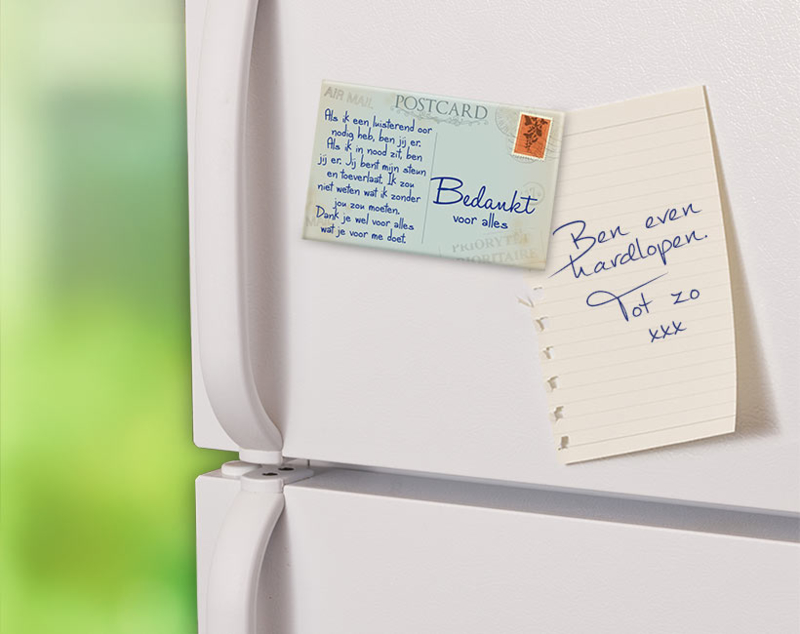 AIR MAIL
POSTCARD
Als ik een luisterend oor
nodig heb, ben jij er.
Als ik in nood zit, ben
jij er. Jij bent mijn steun
en toeverlaat. Ik zou
niet weten wat ik zonder
jou zou moeten.
Dank je wel voor alles
wat je voor me doet.
Bedankt
voor alles
PRIORITAIRE
Ben even
hardlopen.
Tot zo
xxx